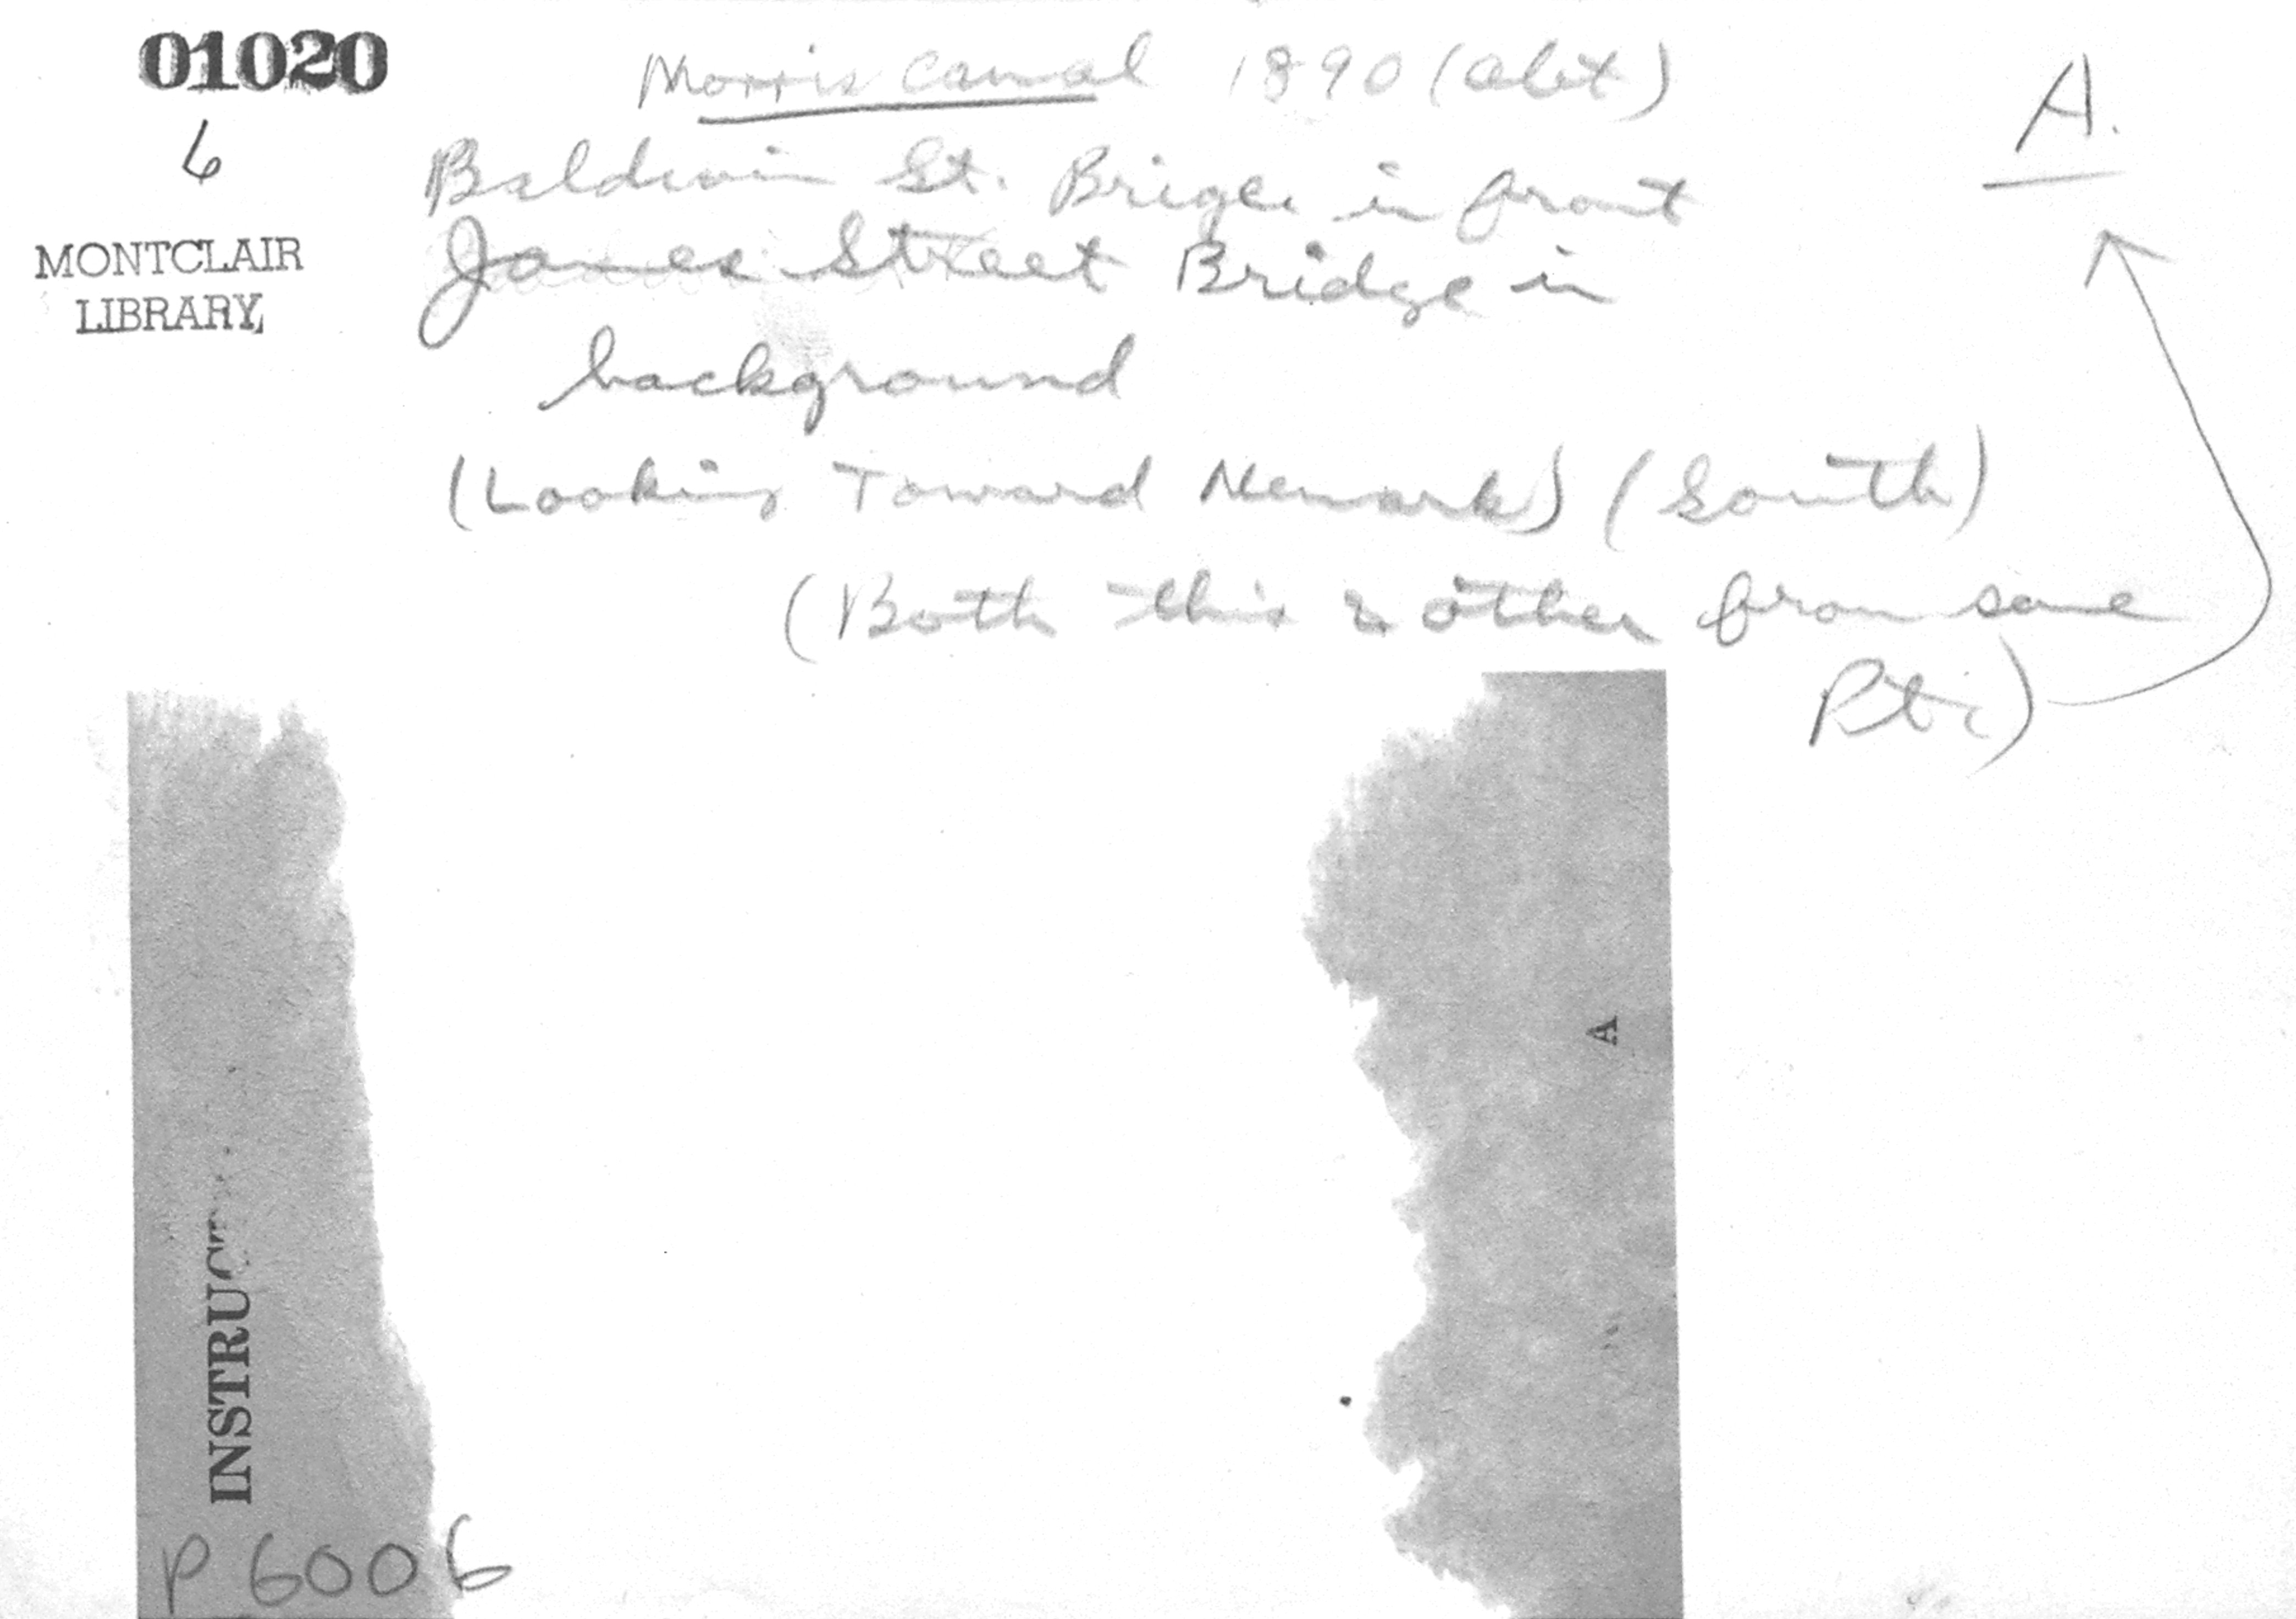 01020
6
MONTCLAIR
LIBRARY,
Morris Canal 1890 (abt)
A.
Baldwin St. Brige in front
James Street Bridge in
background
(Looking Toward Newark) (South)
(Both this & other from same
Pt.)
INSTRUCT
A
P6006